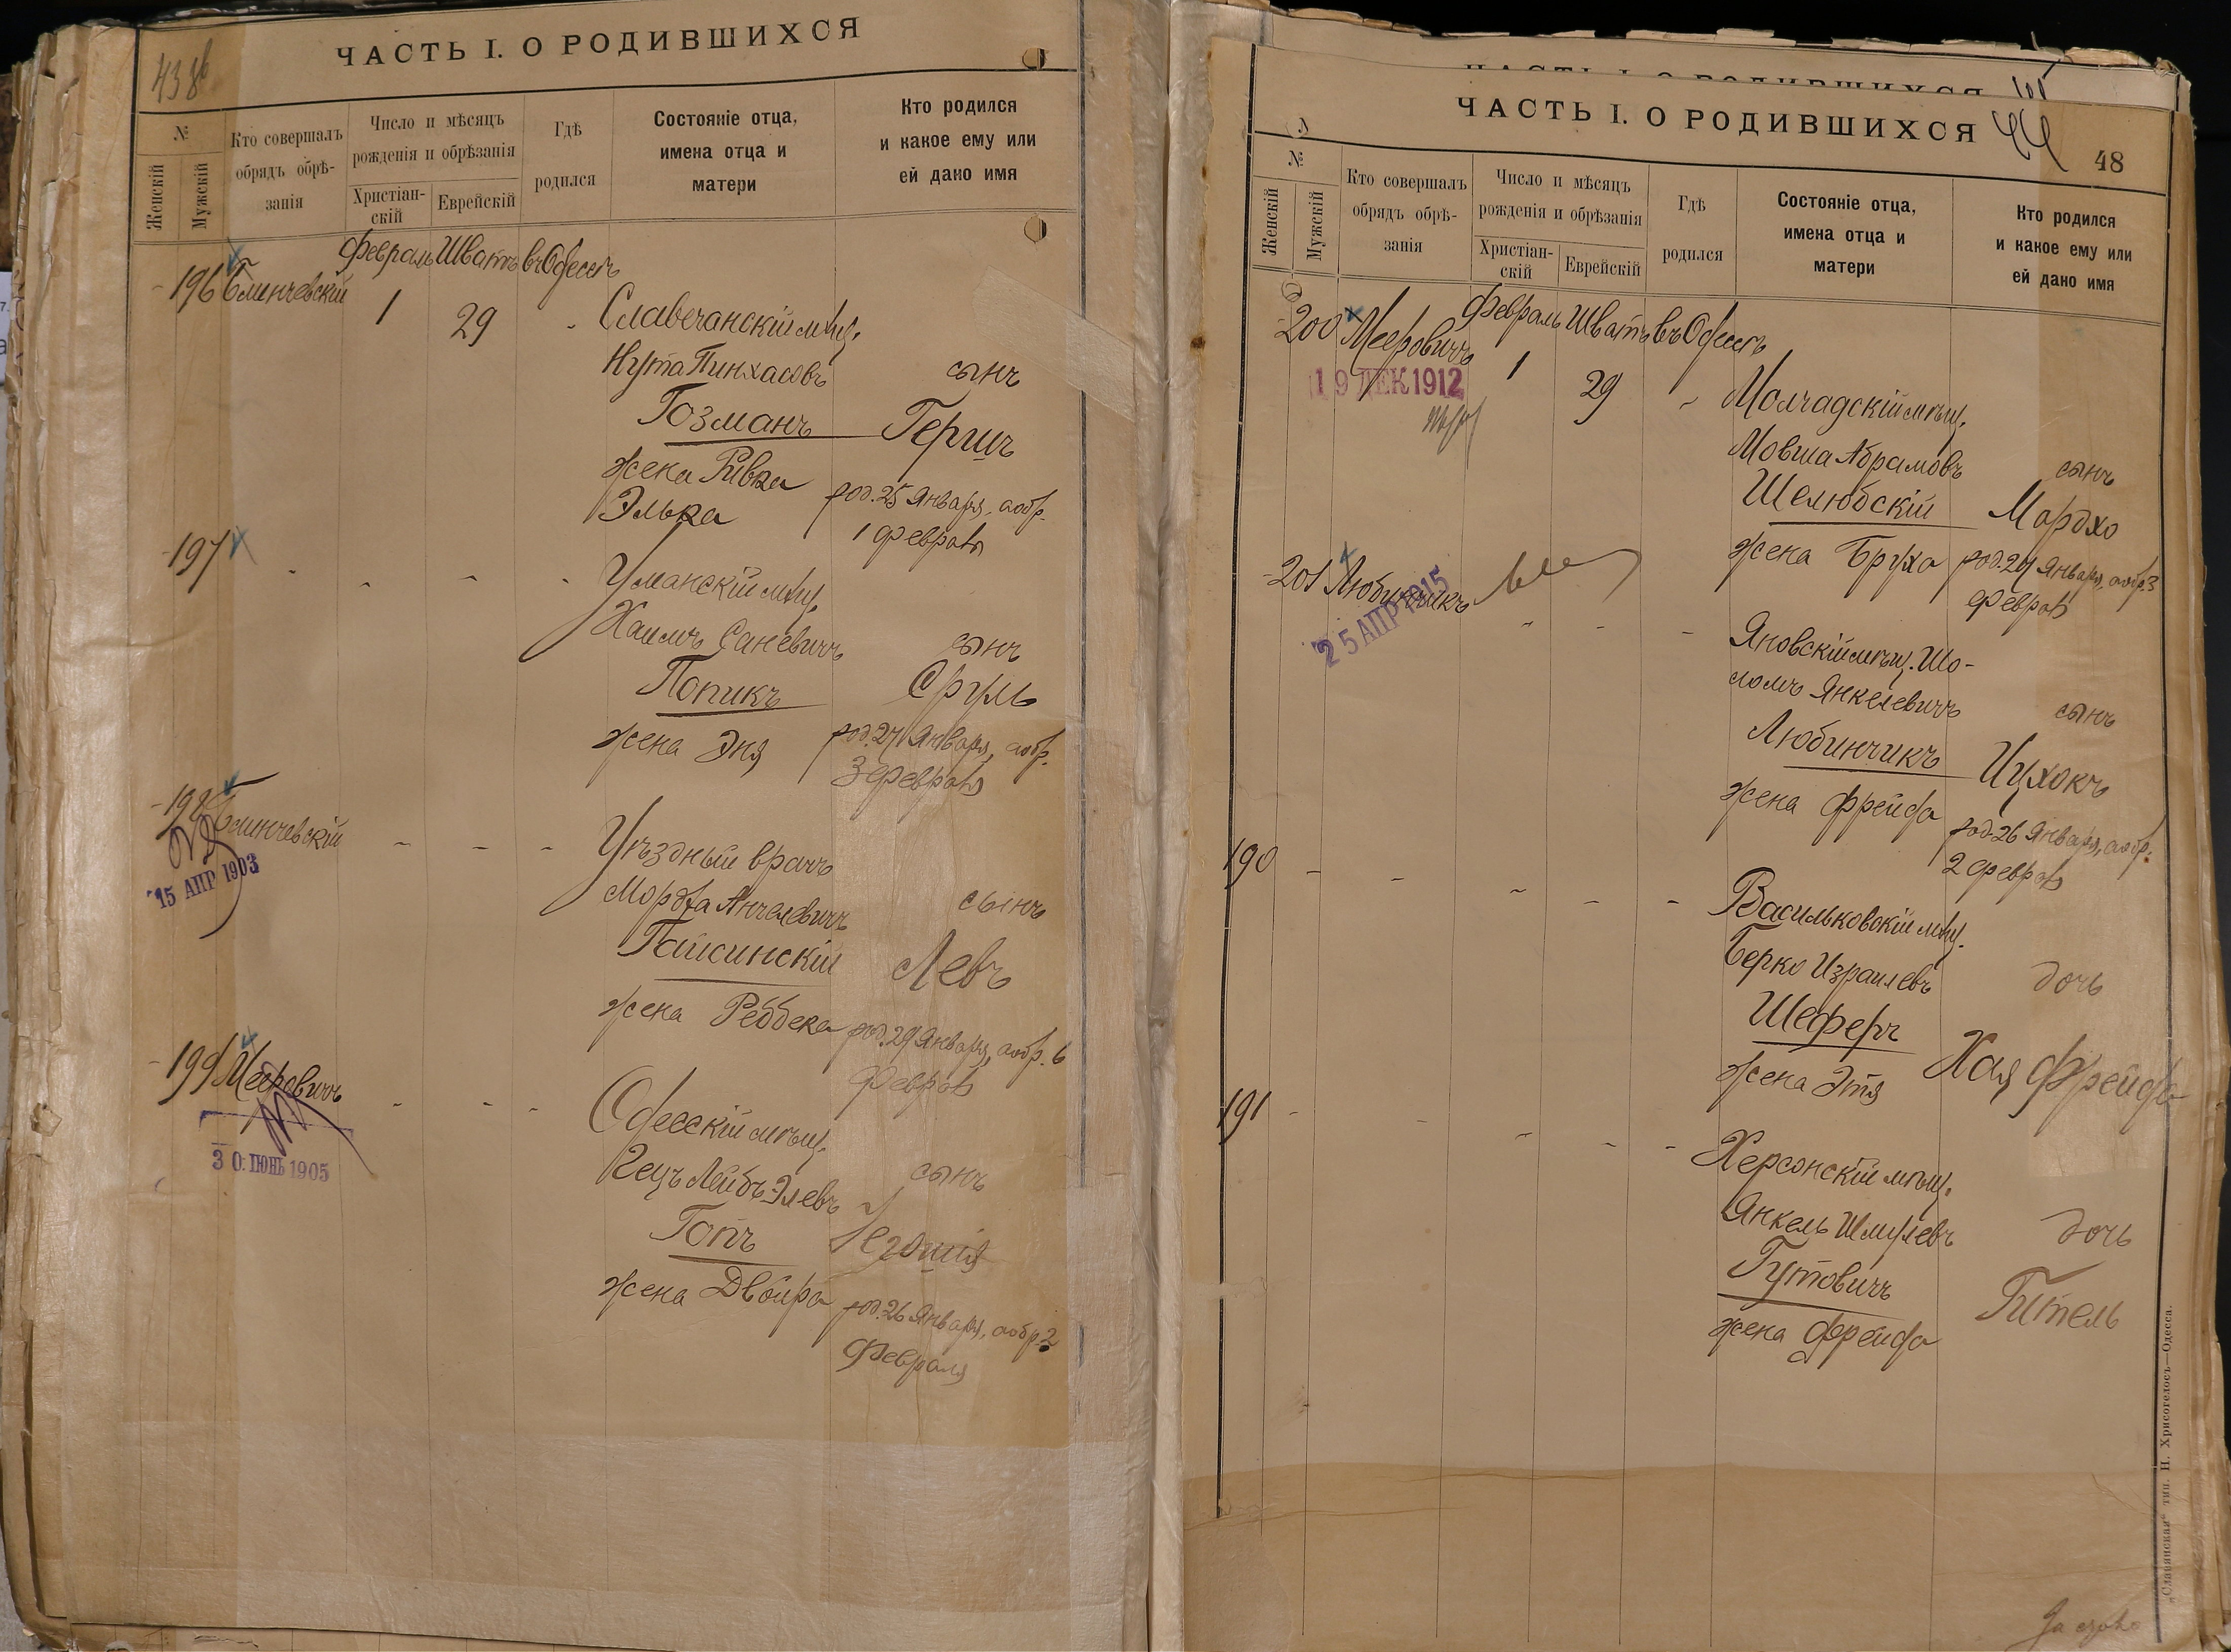 43об
ЧАСТЬ I. О РОДИВШИХСЯ
№
Женскій
Мужскій
Кто совершалъ
обрядъ обрѣ-
занія
Число и мѣсяцъ
рожденія и обрѣзанія
Христіан-
скій
Еврейскій
Гдѣ
родился
Состояніе отца,
имена отца и
матери
Кто родился
и какое ему или
ей дано имя
Февраль Шватъ въ Одессѣ
196 Блинчевскій
1 29 - Славечанскій мѣщ.
Нута Пинхасовъ
сынъ
Гозманъ
Гершъ
жена Ривка
Элька
род. 25 Января, а обр.
1 Февраля
197 - - - - Уманскій мѣщ.
Хаимъ Саневичъ
сынъ
Попикъ
Сруль
жена Эня
род. 27 Января, а обр.
3 Февраля
198 Блинчевскій - - - Уѣздный врачъ
15 АПР 1903
Мордха Анчелевичъ
сынъ
Гайсинскій
Левъ
жена Реббека
род. 29 Января, а обр. 6
Февраля
199 Мееровичъ - - - Одесскій мѣщ.
30 ІЮНЬ 1905
Гецъ Лейбъ Элевъ
сынъ
Готъ
Іегошія
жена Двойра
род. 26 Января, а обр. 2
Февраля
ЧАСТЬ I. О РОДИВШИХСЯ
44
48
№
Женскій
Мужскій
Кто совершалъ
обрядъ обрѣ-
занія
Число и мѣсяцъ
рожденія и обрѣзанія
Христіан-
скій
Еврейскій
Гдѣ
родился
Состояніе отца,
имена отца и
матери
Кто родился
и какое ему или
ей дано имя
Февраль Шватъ въ Одессѣ
200 Мееровичъ
1 29 - Молчадскій мѣщ.
19 ДЕК 1912
Мовша Абрамовъ
сынъ
Шелюбскій
Мордхо
жена Бруха
род. 27 Января, а обр. 3
Февраля
201 Любинчикъ - - - Яновскій мѣщ. Шо-
25 АПР 1915
ломъ Янкелевичъ
сынъ
Любинчикъ
Ицхокъ
жена Фрейда
род. 26 Января, а обр.
2 Февраля
190 - - - - - Васильковскій мѣщ.
Берко Израилевъ
дочь
Шеферъ
Хая Фрейда
жена Этя
191 - - - - - Херсонскій мѣщ.
Янкель Шмулевъ
дочь
Гутовичъ
Гитель
жена Фрейда
„Славянская“ тип. Н. Хрисогелосъ—Одесса.